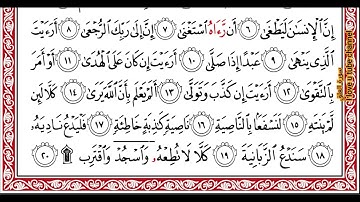 إِنَّ ٱلْإِنسَٰنَ لَيَطْغَىٰٓ ٦ أَن رَّءَاهُ ٱسْتَغْنَىٰٓ ٧ إِنَّ إِلَىٰ رَبِّكَ ٱلرُّجْعَىٰٓ ٨ أَرَءَيْتَ
ٱلَّذِى يَنْهَىٰ ٩ عَبْدًا إِذَا صَلَّىٰٓ ١٠ أَرَءَيْتَ إِن كَانَ عَلَى ٱلْهُدَىٰٓ ١١ أَوْ أَمَرَ
بِٱلتَّقْوَىٰٓ ١٢ أَرَءَيْتَ إِن كَذَّبَ وَتَوَلَّىٰٓ ١٣ أَلَمْ يَعْلَم بِأَنَّ ٱللَّهَ يَرَىٰ ١٤ كَلَّا لَئِن
لَّمْ يَنتَهِ لَنَسْفَعًۢا بِٱلنَّاصِيَةِ ١٥ نَاصِيَةٍ كَٰذِبَةٍ خَاطِئَةٍ ١٦ فَلْيَدْعُ نَادِيَهُۥ ١٧
سَنَدْعُ ٱلزَّبَانِيَةَ ١٨ كَلَّا لَا تُطِعْهُ وَٱسْجُدْ وَٱقْتَرِب ۩ ١٩ ٢٠